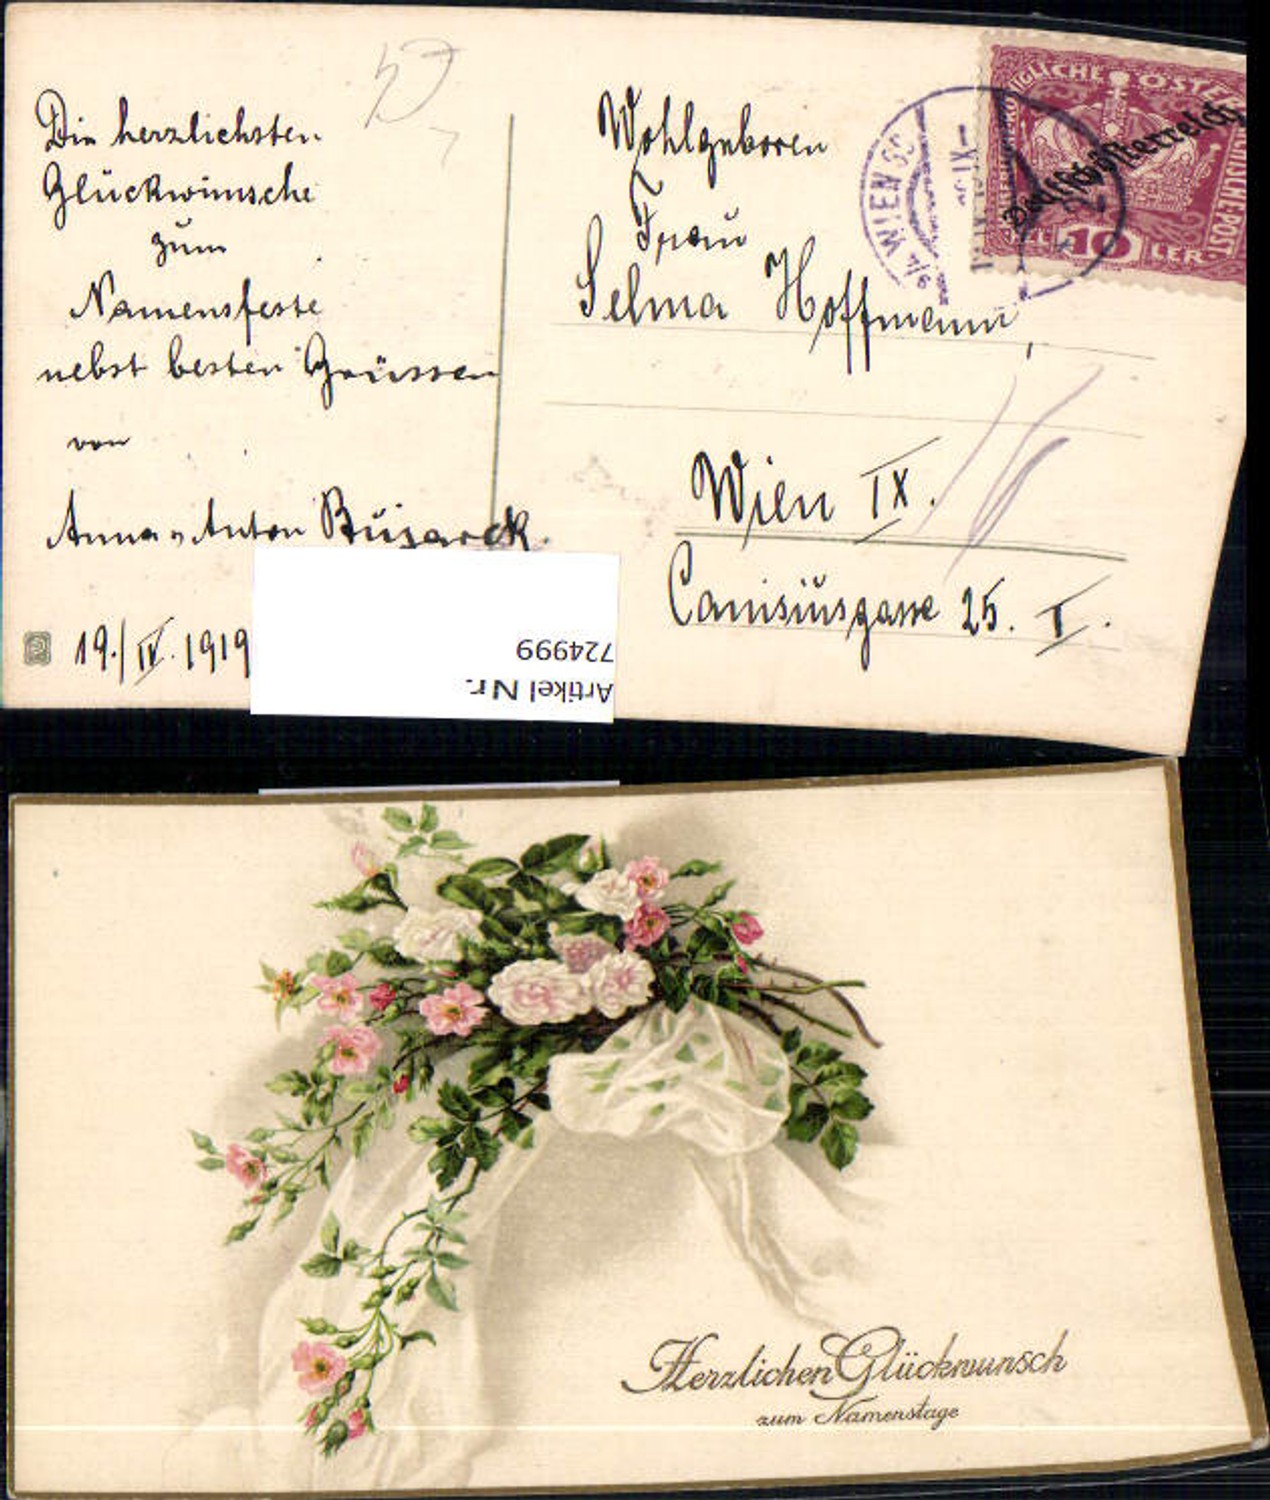 Die herzlichsten
Glückwünsche
zum
Namensfeste
nebst besten Grüssen
von
Anna u. Anton
19./IV. 1919
Wohlgeboren
Frau
Selma Hoffmann,
Wien IX.
Canisiusgasse 25. I.
WIEN
KÖNIGLICHE ÖSTERREICHISCHE POST
Deutschösterreich
10
HELLER
Artikel Nr.
724999
Herzlichen Glückwunsch
zum Namenstage